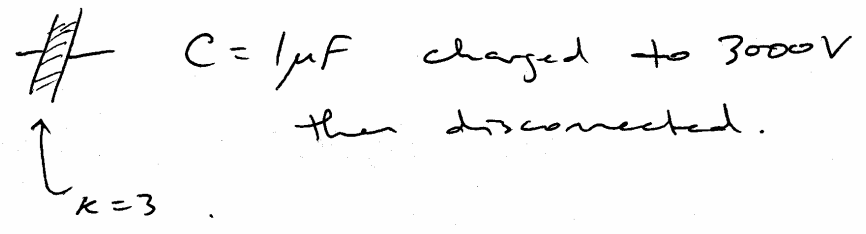 C = 1μF charged to 3000V
then disconnected.
κ = 3